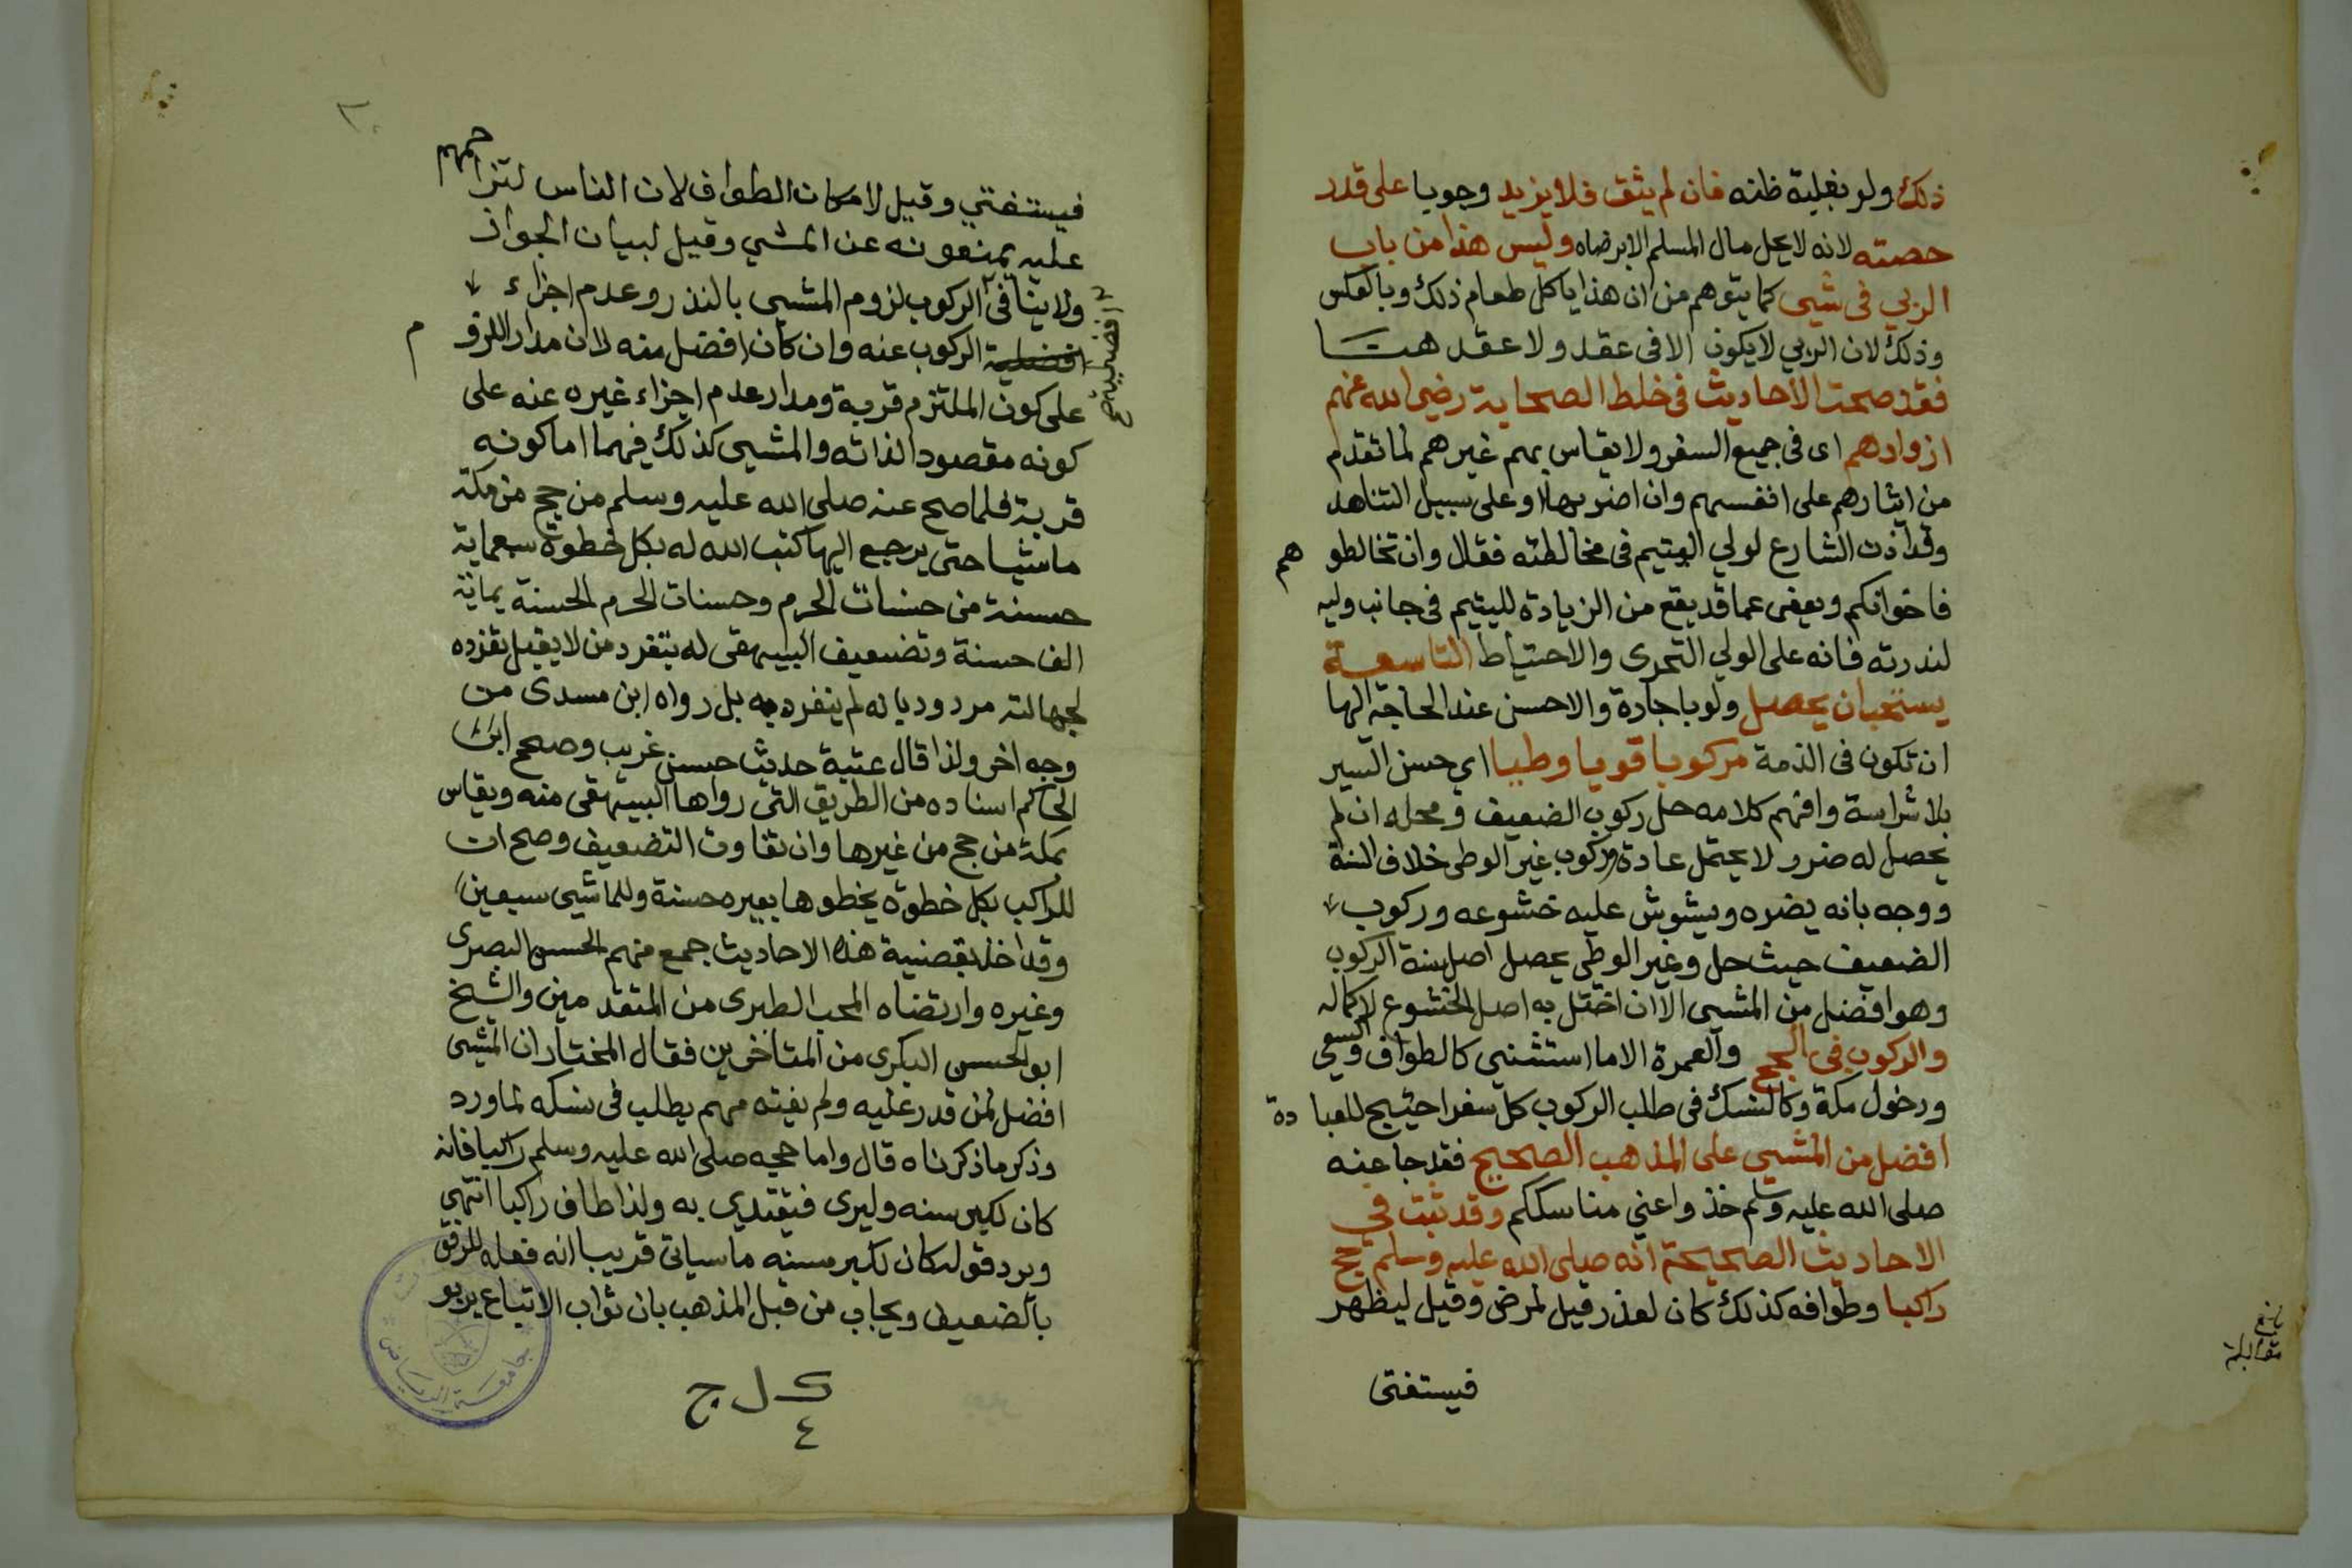 ذلك ولو بغلبة ظنه فان لم يثق فلا يزيد وجوبا على قدر
حصته لانه لا يحل مال المسلم الا برضاه وليس هذا من باب
الربي في شيى كما يتوهم من ان هذا ياكل طعام ذلك وبالعكس
وذلك لان الربي لا يكون الا في عقد ولا عقد هنا
فقد صحت الأحاديث في خلط الصحابة رضي الله عنهم
ازوادهم اى في جميع السفر ولا يقاس بهم غيرهم لما تقدم
من ايثارهم على انفسهم وان اضر بها او على سبيل التناهد
وقد اذن الشارع لولي اليتيم في مخالطته فقال وان تخالطوهم
فاخوانكم ويعفى عما قد يقع من الزيادة لليتيم في جانب وليه
لندرته فانه على الولي التحرى والاحتياط التاسعة
يستحب ان يحصل ولو باجارة والاحسن عند الحاجة الها
ان تكون في الذمة مركوبا قويا وطيا اي حسن السير
بلا شراسة وافهم كلامه حل ركوب الضعيف ومحله ان لم
يحصل له ضرر لا يحتمل عادة وركوب غير الوطى خلاف السنة
ووجه بانه يضره ويشوش عليه خشوعه وركوب
الضعيف حيث حل وغير الوطى يحصل اصل سنة الركوب
وهو افضل من المشيى الا ان اختل به اصل الخشوع لا كماله
والركوب في الحج والعمرة الا ما استثني كالطواف والسعي
ودخول مكة وكالنسك في طلب الركوب كل سفر احتيج للعبادة
افضل من المشيي على المذهب الصحيح فقد جا عنه
صلى الله عليه وسلم خذوا عني مناسككم وقد ثبت في
الاحاديث الصحيحة انه صلى الله عليه وسلم حج
راكبا وطوافه كذلك كان لعذر قيل لمرض وقيل ليظهر
فيستفتى
بلغ
مقابلة
فيستفتي وقيل لامكان الطواف لان الناس لتزاحمهم
عليه يمنعونه عن المشي وقيل لبيان الجواز
ولا ينافي الركوب لزوم المشيى بالنذر وعدم اجزاء
افضلية الركوب عنه وان كان افضل منه لان مدار اللزوم
افضلية صح
على كون الملتزم قربة ومدار عدم اجزاء غيره عنه على
كونه مقصودا لذاته والمشيى كذلك فيهما اما كونه
قربة فلما صح عنه صلى الله عليه وسلم من حج من مكة
ماشيا حتى يرجع اليها كتب الله له بكل خطوة سبعماية
حسنة من حسنات الحرم وحسنات الحرم الحسنة بماية
الف حسنة وتضعيف البيهقى له بتفرد من لا يقبل تفرده
لجهالته مردود بانه لم ينفرد به بل رواه ابن مسدى من
وجه اخر ولذا قال عتبة حديث حسن غريب وصحح ابن
الحاكم اسناده من الطريق التى رواها البيهقى منه ويقاس
بمكة من حج من غيرها وان تفاوت التضعيف وصح ان
للراكب بكل خطوة يخطوها بعيره حسنة وللماشيى سبعين
وقد اخذ بقضية هذه الاحاديث جمع منهم الحسن البصرى
وغيره وارتضاه المحب الطبرى من المتقدمين والشيخ
ابو الحسن البكرى من المتاخرين فقال المختار ان المشيى
افضل لمن قدر عليه ولم يفته مهم يطلب في نسكه لما ورد
وذكر ما ذكرناه قال واما حجه صلى الله عليه وسلم راكبا فانه
كان لكبر سنه وليرى فيقتدي به ولذا طاف راكبا انتهى
ويرد قوله كان لكبر سنه ما سياتي قريبا انه فعله للرفق
بالضعيف ويجاب من قبل المذهب بان ثواب الاتباع يربو
ك ل ج
٤
جامعة الرياض